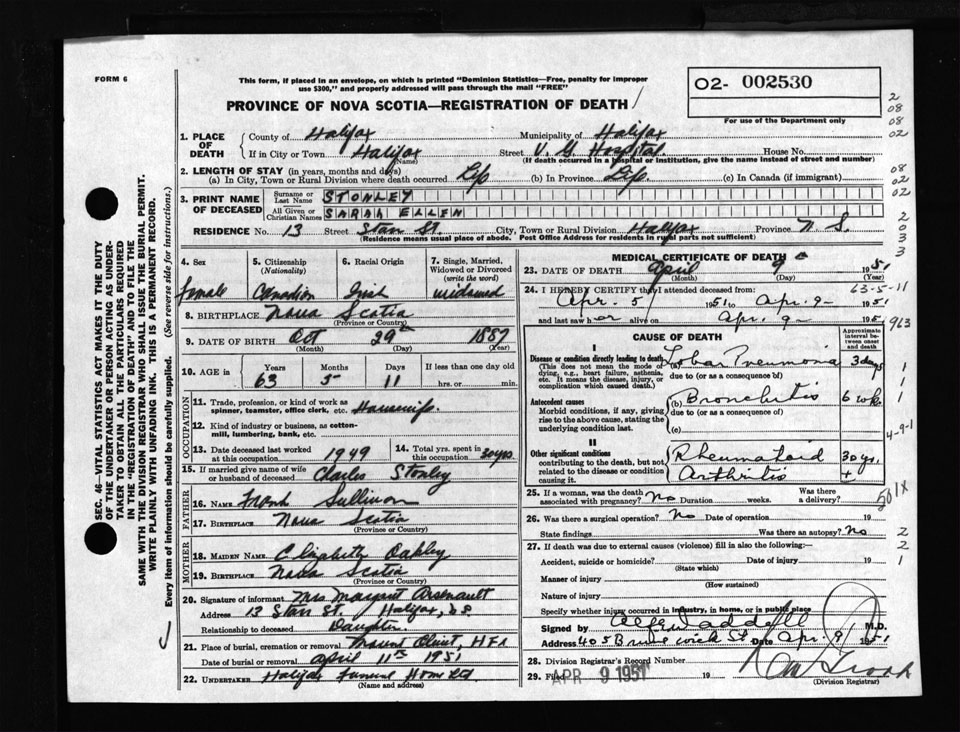 FORM 6
This form, if placed in an envelope, on which is printed "Dominion Statistics—Free, penalty for improper
use $300," and properly addressed will pass through the mail "FREE"
PROVINCE OF NOVA SCOTIA—REGISTRATION OF DEATH
02- 002530
For use of the Department only
2
08
08
02
1. PLACE OF DEATH
County of Halifax Municipality of Halifax
If in City or Town Halifax Street V. G. Hospital. House No.
(Name) (If death occurred in a hospital or institution, give the name instead of street and number)
2. LENGTH OF STAY (in years, months and days)
(a) In City, Town or Rural Division where death occurred Life (b) In Province Life. (c) In Canada (if immigrant)
08
02
02
3. PRINT NAME OF DECEASED
Surname or Last Name STONLEY
All Given or Christian Names SARAH ELLEN
RESIDENCE No. 13 Street Starr St. City, Town or Rural Division Halifax Province N. S.
(Residence means usual place of abode. Post Office Address for residents in rural parts not sufficient)
2
0
3
3
4. Sex
female
5. Citizenship
(Nationality)
Canadian
6. Racial Origin
Irish
7. Single, Married, Widowed or Divorced
(write the word)
widowed
8. BIRTHPLACE Nova Scotia
(Province or Country)
9. DATE OF BIRTH Oct 29th 1887
(Month) (Day) (Year)
10. AGE in
Years 63
Months 5
Days 11
If less than one day old
hrs. or min.
OCCUPATION
11. Trade, profession or kind of work as
spinner, teamster, office clerk, etc. Housewife.
12. Kind of industry or business, as cotton-
mill, lumbering, bank, etc.
13. Date deceased last worked
at this occupation 1949
14. Total yrs. spent in
this occupation 30 yrs.
15. If married give name of wife
or husband of deceased Charles Stonley
FATHER
16. NAME Frank Sullivan
17. BIRTHPLACE Nova Scotia
(Province or Country)
MOTHER
18. MAIDEN NAME Elizabeth Oakley
19. BIRTHPLACE Nova Scotia
(Province or Country)
20. Signature of informant Mrs Margaret Arsenault
Address 13 Starr St. Halifax, N S
Relationship to deceased Daughter.
21. Place of burial, cremation or removal Mount Olivet, HFX
Date of burial or removal April 11th 1951
22. UNDERTAKER Halifax Funeral Home Ltd
(Name and address)
MEDICAL CERTIFICATE OF DEATH
23. DATE OF DEATH April 9th 1951
(Month) (Day) (Year)
24. I HEREBY CERTIFY that I attended deceased from: 63-5-11
Apr. 5 1951 to Apr. 9- 1951
and last saw her alive on Apr. 9- 1951
963
CAUSE OF DEATH
Approximate interval between onset and death
I
Disease or condition directly leading to death
(This does not mean the mode of
dying, e.g., heart failure, asthenia,
etc. It means the disease, injury, or
complication which caused death.)
Lobar Pneumonia 3 days
due to (or as a consequence of)
Antecedent causes
Morbid conditions, if any, giving
rise to the above cause, stating the
underlying condition last.
(b) Bronchitis 6 wks
due to (or as a consequence of)
(c)
1
1
1
4-9-1
II
Other significant conditions
contributing to the death, but not
related to the disease or condition
causing it.
Rheumatoid Arthritis 30 yrs. +
25. If a woman, was the death
associated with pregnancy? No Duration weeks. Was there a delivery?
501X
26. Was there a surgical operation? No Date of operation 19
State findings Was there an autopsy? No
2
27. If death was due to external causes (violence) fill in also the following:—
2
Accident, suicide or homicide? Date of injury 19
(State which)
1
Manner of injury
(How sustained)
Nature of injury
Specify whether injury occurred in industry, in home, or in public place
Signed by M.D.
Address 405 Brunswick St Date Apr. 9 1951
28. Division Registrar's Record Number
29. Filed APR 9 1951 19
(Division Registrar)
SEC. 46—VITAL STATISTICS ACT MAKES IT THE DUTY
OF THE UNDERTAKER OR PERSON ACTING AS UNDER-
TAKER TO OBTAIN ALL THE PARTICULARS REQUIRED
IN THE "REGISTRATION OF DEATH" AND TO FILE THE
SAME WITH THE DIVISION REGISTRAR WHO SHALL ISSUE THE BURIAL PERMIT.
WRITE PLAINLY WITH UNFADING INK. THIS IS A PERMANENT RECORD.
Every item of information should be carefully supplied. (See reverse side for instructions.)